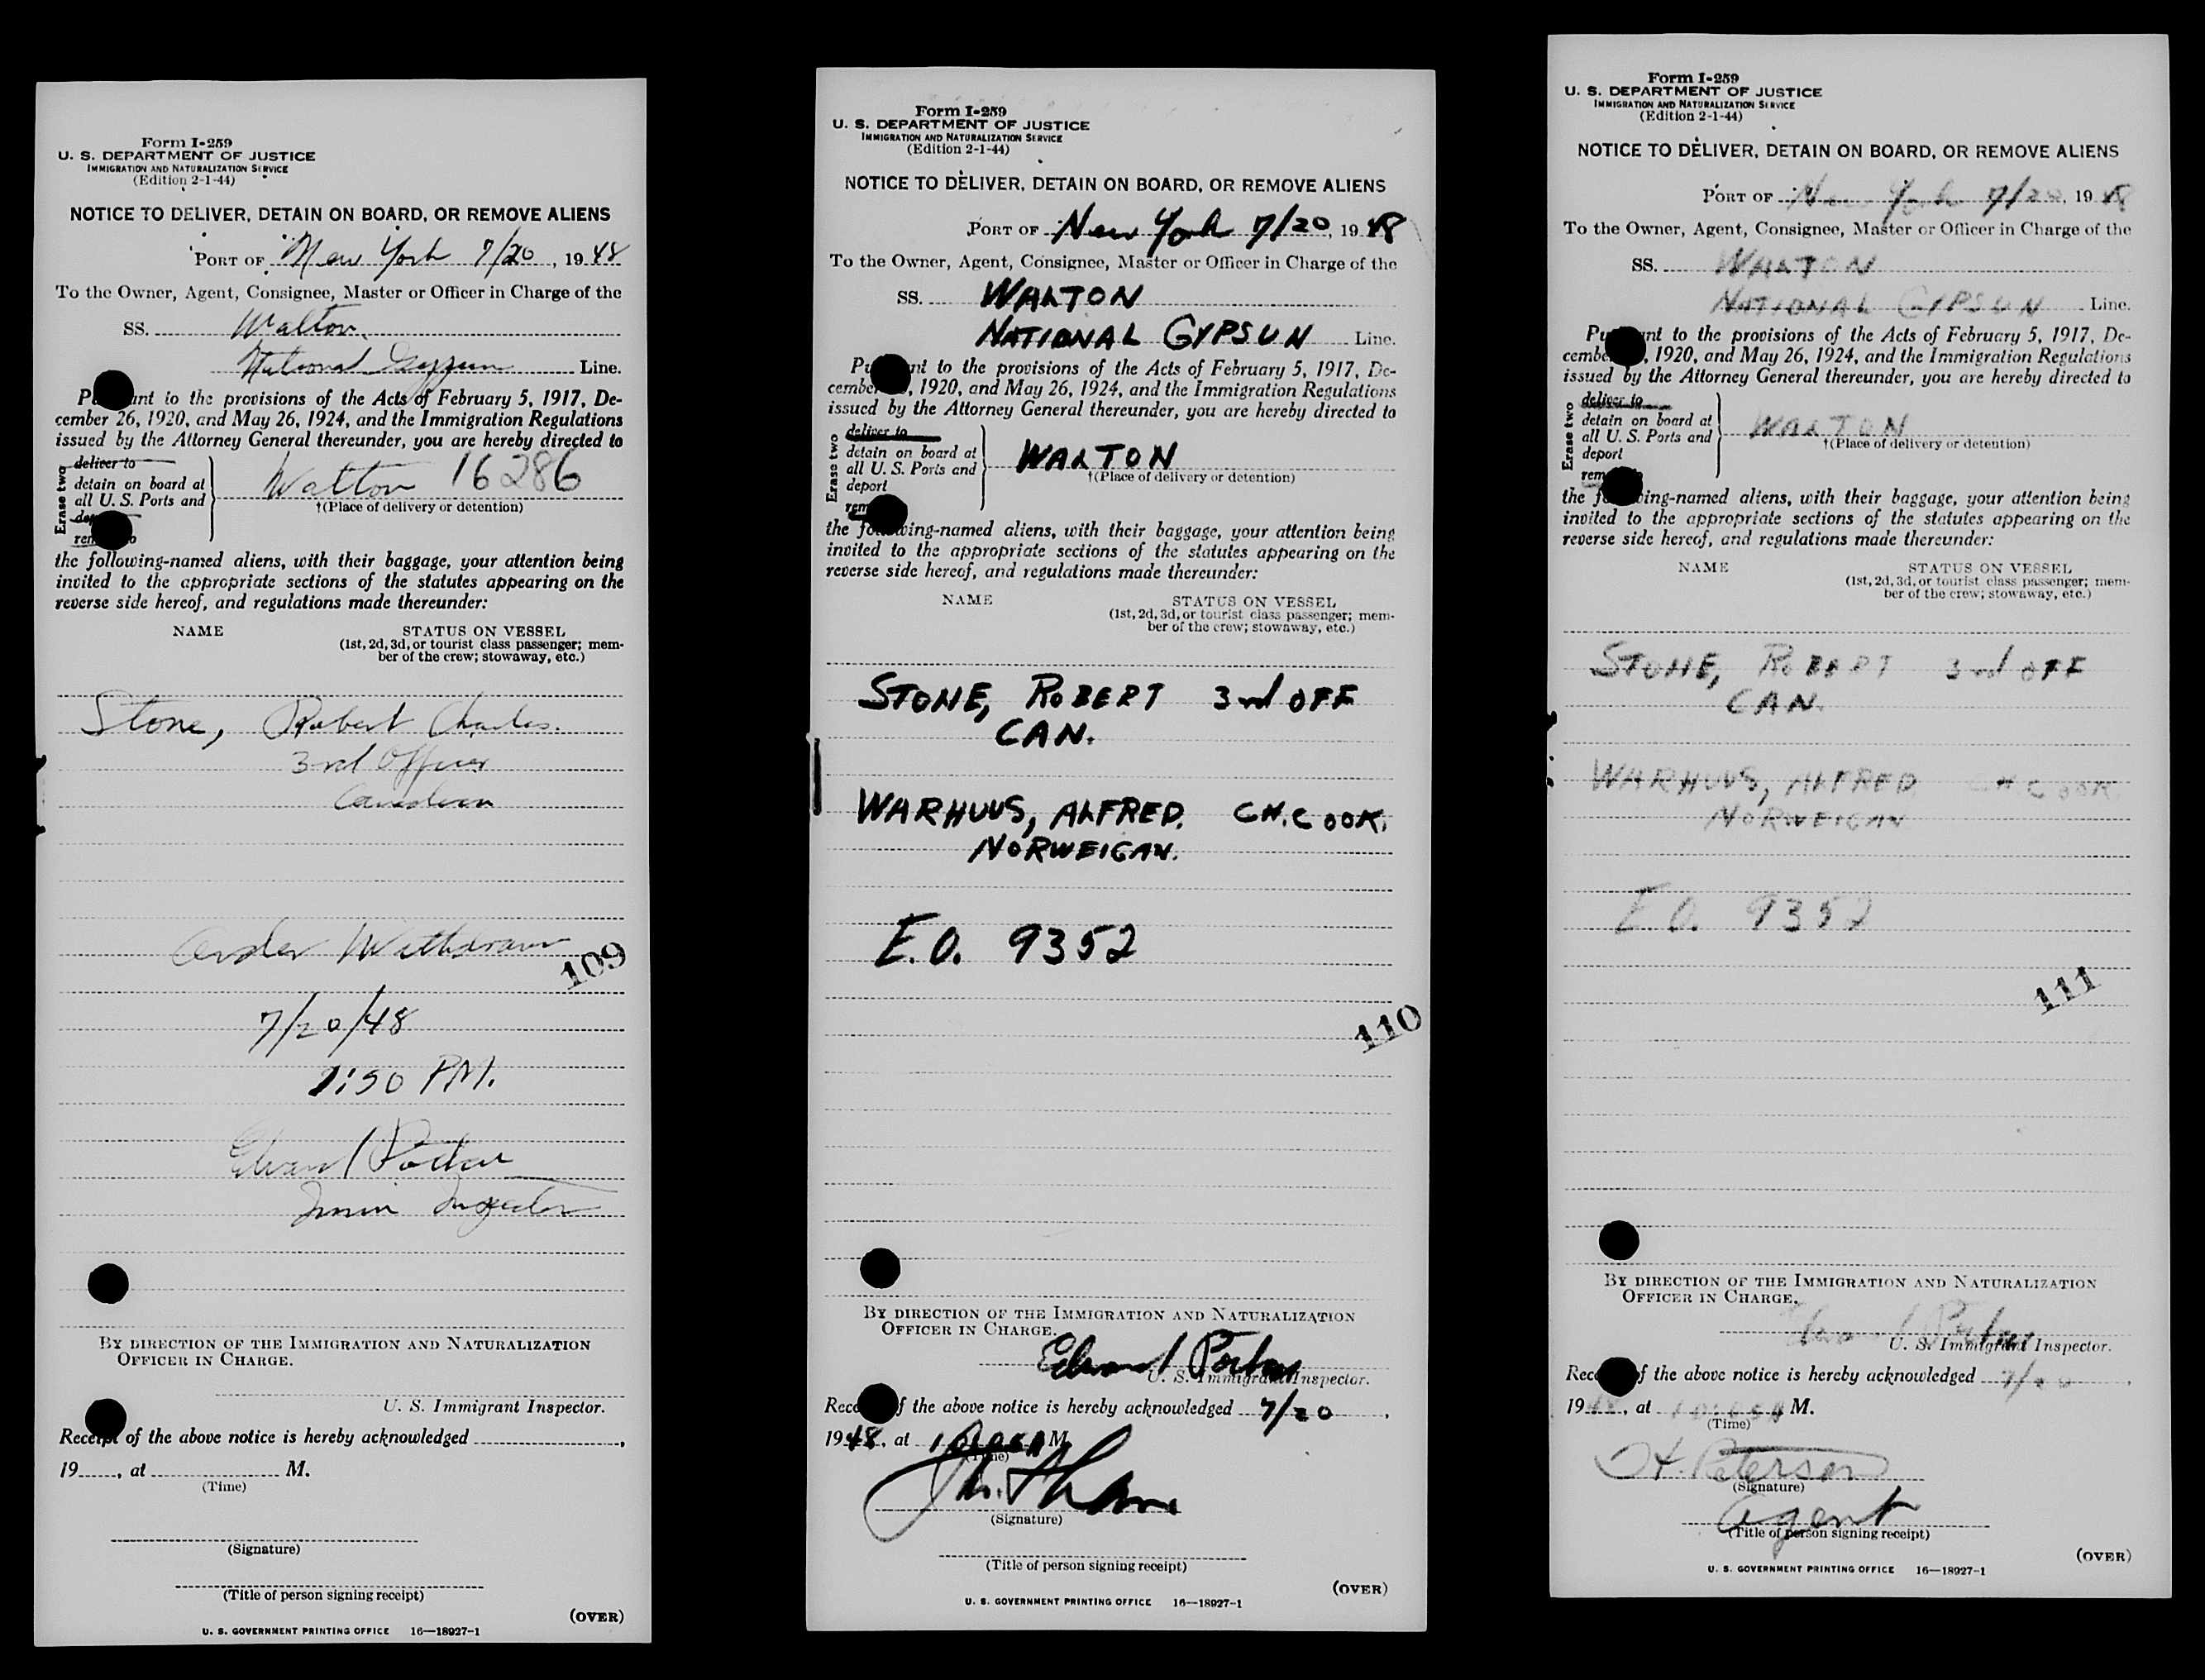 Form I-259
U. S. DEPARTMENT OF JUSTICE
IMMIGRATION AND NATURALIZATION SERVICE
(Edition 2-1-44)
NOTICE TO DELIVER, DETAIN ON BOARD, OR REMOVE ALIENS
PORT OF New York 7/20, 1948
To the Owner, Agent, Consignee, Master or Officer in Charge of the
SS. Walton
National Gypsum Line.
P nt to the provisions of the Acts of February 5, 1917, De-
cember 26, 1920, and May 26, 1924, and the Immigration Regulations
issued by the Attorney General thereunder, you are hereby directed to
Erase two
deliver to
detain on board at
all U. S. Ports and
dep
rem o
Walton 16286
†(Place of delivery or detention)
the following-named aliens, with their baggage, your attention being
invited to the appropriate sections of the statutes appearing on the
reverse side hereof, and regulations made thereunder:
NAME STATUS ON VESSEL
(1st, 2d, 3d, or tourist class passenger; mem-
ber of the crew; stowaway, etc.)
Stone, Robert Charles.
3rd Officer
Canadian
Order Withdrawn
109
7/20/48
1:50 PM.
Edward Porter
Immin Inspector
BY DIRECTION OF THE IMMIGRATION AND NATURALIZATION
OFFICER IN CHARGE.
U. S. Immigrant Inspector.
Receipt of the above notice is hereby acknowledged
19 , at M.
(Time)
(Signature)
(Title of person signing receipt)
(OVER)
U. S. GOVERNMENT PRINTING OFFICE 16—18927-1
Form I-259
U. S. DEPARTMENT OF JUSTICE
IMMIGRATION AND NATURALIZATION SERVICE
(Edition 2-1-44)
NOTICE TO DELIVER, DETAIN ON BOARD, OR REMOVE ALIENS
PORT OF New York 7/20, 1948
To the Owner, Agent, Consignee, Master or Officer in Charge of the
SS. WALTON
NATIONAL GYPSUN Line.
Pu nt to the provisions of the Acts of February 5, 1917, De-
cember , 1920, and May 26, 1924, and the Immigration Regulations
issued by the Attorney General thereunder, you are hereby directed to
Erase two
deliver to
detain on board at
all U. S. Ports and
deport
rem
WALTON
†(Place of delivery or detention)
the following-named aliens, with their baggage, your attention being
invited to the appropriate sections of the statutes appearing on the
reverse side hereof, and regulations made thereunder:
NAME STATUS ON VESSEL
(1st, 2d, 3d, or tourist class passenger; mem-
ber of the crew; stowaway, etc.)
STONE, ROBERT 3rd OFF
CAN.
WARHUUS, ALFRED. CH. COOK.
NORWEIGAN.
E.O. 9352
110
BY DIRECTION OF THE IMMIGRATION AND NATURALIZATION
OFFICER IN CHARGE.
Edward Porter
U. S. Immigrant Inspector.
Rece f the above notice is hereby acknowledged 7/20,
1948, at M.
(Time)
(Signature)
(Title of person signing receipt)
(OVER)
U. S. GOVERNMENT PRINTING OFFICE 16—18927-1
Form I-259
U. S. DEPARTMENT OF JUSTICE
IMMIGRATION AND NATURALIZATION SERVICE
(Edition 2-1-44)
NOTICE TO DELIVER, DETAIN ON BOARD, OR REMOVE ALIENS
PORT OF New York 7/20, 1948
To the Owner, Agent, Consignee, Master or Officer in Charge of the
SS. WALTON
NATIONAL GYPSUN Line.
Pu nt to the provisions of the Acts of February 5, 1917, De-
cembe , 1920, and May 26, 1924, and the Immigration Regulations
issued by the Attorney General thereunder, you are hereby directed to
Erase two
deliver to
detain on board at
all U. S. Ports and
deport
rem
WALTON
†(Place of delivery or detention)
the fo wing-named aliens, with their baggage, your attention being
invited to the appropriate sections of the statutes appearing on the
reverse side hereof, and regulations made thereunder:
NAME STATUS ON VESSEL
(1st, 2d, 3d, or tourist class passenger; mem-
ber of the crew; stowaway, etc.)
STONE, ROBERT 3rd OFF
CAN.
WARHUUS, ALFRED CH COOK.
NORWEIGAN
E.O. 9352
111
BY DIRECTION OF THE IMMIGRATION AND NATURALIZATION
OFFICER IN CHARGE.
Edward Porter
U. S. Immigrant Inspector.
Rece f the above notice is hereby acknowledged 7/20,
1948, at M.
(Time)
H. Peterson
(Signature)
agent
(Title of person signing receipt)
(OVER)
U. S. GOVERNMENT PRINTING OFFICE 16—18927-1